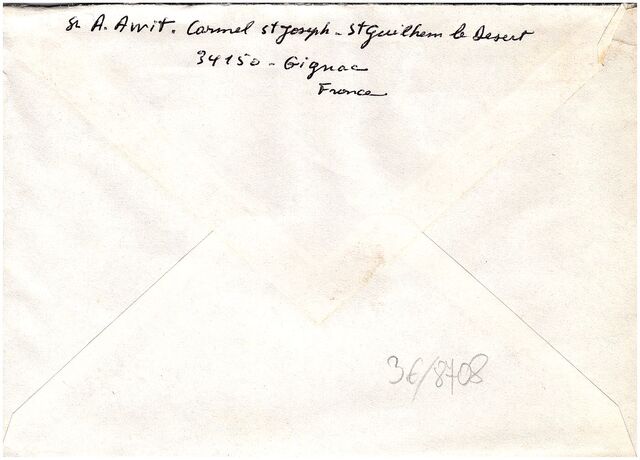 Sr A. Avvit. Carmel St Joseph - St Guilhem le Desert
34150 - Gignac
France
3€/8708